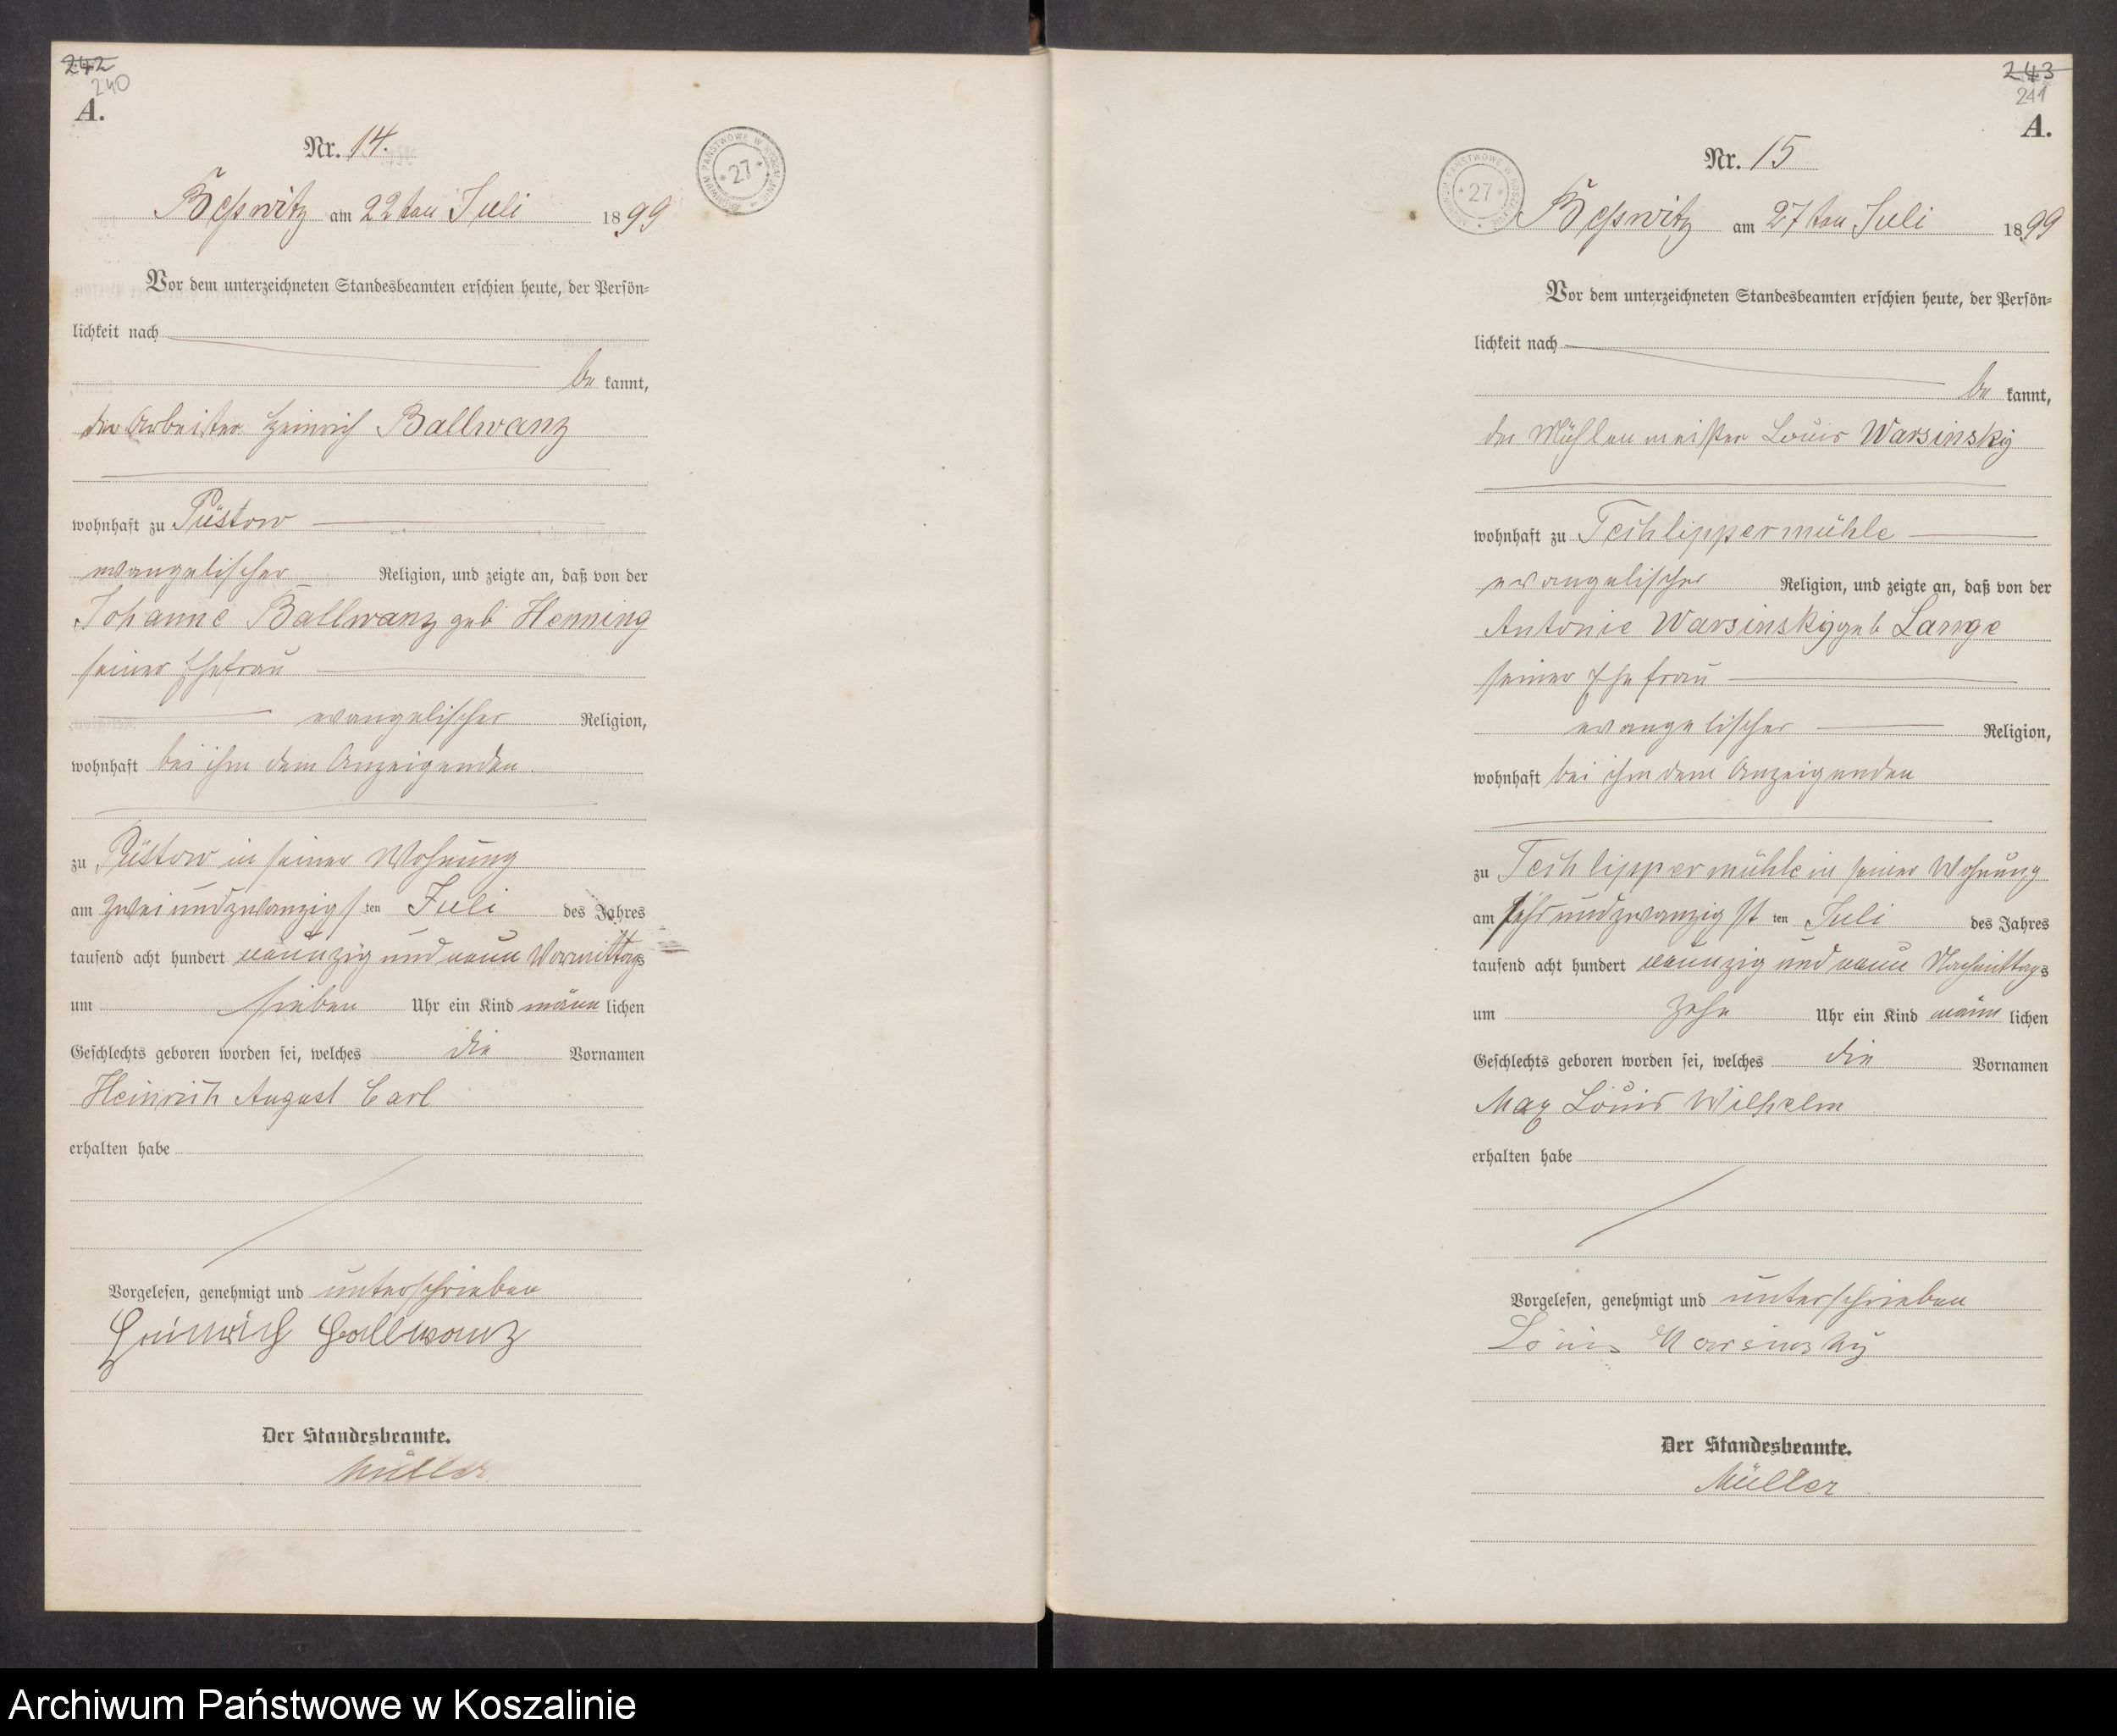 242
240
A.
Nr. 14.
Beßwitz am 22ten Juli 1899
ARCHIWUM PAŃSTWOWE W KOSZALINIE * 27 *
Vor dem unterzeichneten Standesbeamten erschien heute, der Persön=
lichkeit nach
be kannt,
der Arbeiter Heinrich Ballwanz
wohnhaft zu Püstow
evangelischer Religion, und zeigte an, daß von der
Johanne Ballwanz geb Henning
seiner Ehefrau
evangelischer Religion,
wohnhaft bei ihm dem Anzeigenden
zu Püstow in seiner Wohnung
am zwei und zwanzigsten Juli des Jahres
tausend acht hundert neunzig und neun Vormittags
um sieben Uhr ein Kind männlichen
Geschlechts geboren worden sei, welches die Vornamen
Heinrich August Carl
erhalten habe
Vorgelesen, genehmigt und unterschrieben
Heinrich Ballwanz
Der Standesbeamte.
Müller
243
241
A.
Nr. 15
ARCHIWUM PAŃSTWOWE W KOSZALINIE * 27 *
Beßwitz am 27ten Juli 1899
Vor dem unterzeichneten Standesbeamten erschien heute, der Persön=
lichkeit nach
be kannt,
der Mühlenmeister Louis Warsinsky
wohnhaft zu Techlippermühle
evangelischer Religion, und zeigte an, daß von der
Antonie Warsinsky geb Lange
seiner Ehefrau
evangelischer Religion,
wohnhaft bei ihm dem Anzeigenden
zu Techlippermühle in seiner Wohnung
am und zwanzigsten Juli des Jahres
tausend acht hundert neunzig und neun Nachmittags
um zehn Uhr ein Kind männlichen
Geschlechts geboren worden sei, welches die Vornamen
Max Louis Wilhelm
erhalten habe
Vorgelesen, genehmigt und unterschrieben
Louis Warsinsky
Der Standesbeamte.
Müller
Archiwum Państwowe w Koszalinie